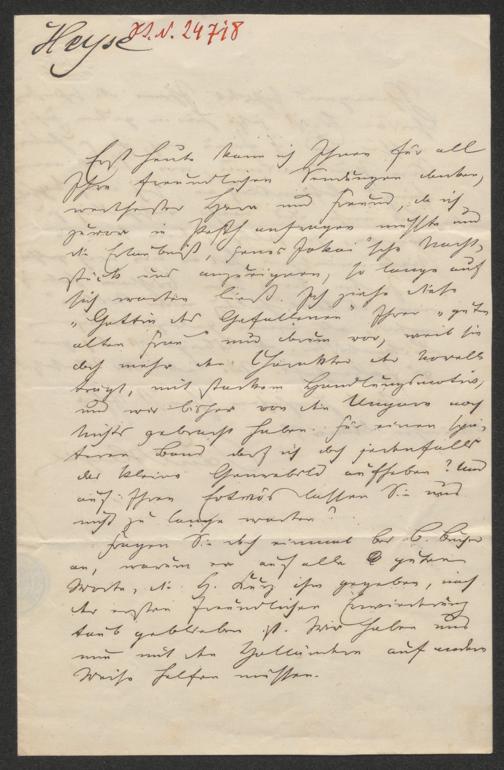 Heyse
H. I. N. 24718
Erst heute kann ich Ihnen für all
Ihre freundlichen Sendungen danken,
werthester Herr und Freund, da ich
zuvor in Pesth anfragen mußte und
die Erlaubniß, jenes Jokai'sche Nacht-
stück uns anzueignen, so lange auf
sich warten ließ. Ich ziehe diese
"Gattin des Gefallenen" Ihrer "guten
alten Frau" nur darum vor, weil sie
doch mehr den Charakter der Novelle
trägt, mit starkem Handlungsmotiv,
und wir bisher von den Ungarn noch
Nichts gebracht haben. Für einen spä-
teren Band darf ich doch jedenfalls
das kleine Genrebild aufheben? Und
auf Ihren Eötvös lassen Sie uns
nicht zu lange warten?
Fragen Sie doch einmal bei B. Bucher
an, warum er auf alle guten
Worte, die H. Kurz ihm gegeben, nach
der ersten freundlichen Erwiederung
taub geblieben ist. Wir haben uns
nun mit den Holländern auf andere
Weise helfen müssen.